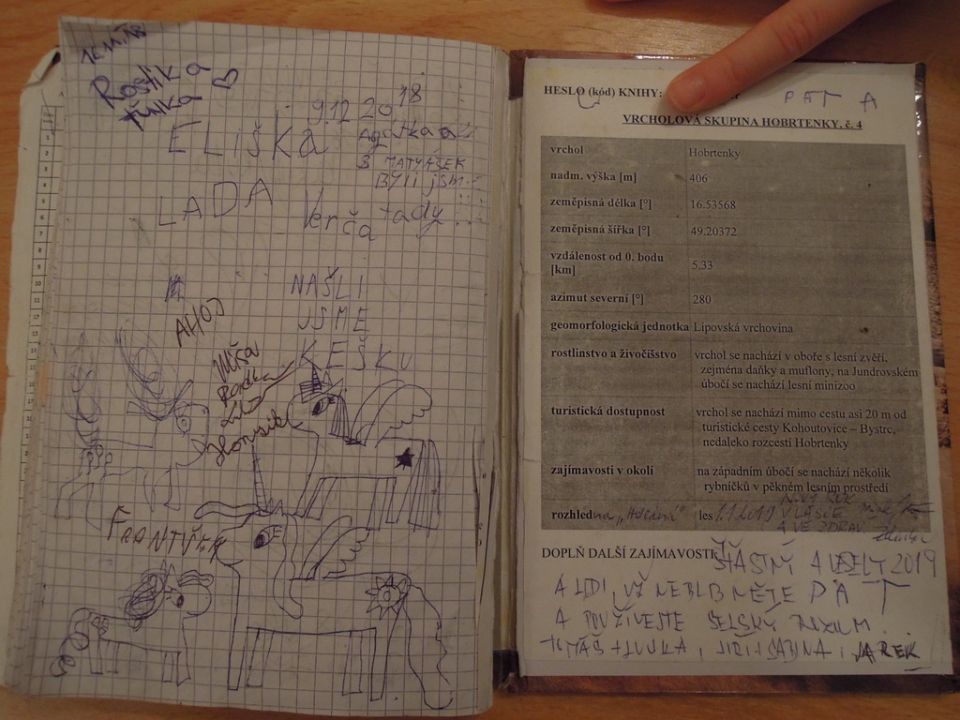 Rostika
9.12 2018
ELiška
B MATYÁŠEK
BYli jsm
LADA
Verča
tady
NAŠLI
JSME
KEŠKU
AHOJ
Míša
HESLO (kód) KNIHY:
PÁŤ A
VRCHOLOVÁ SKUPINA HOBRTENKY, č. 4
vrchol Hobrtenky
nadm. výška [m] 406
zeměpisná délka [°] 16.53568
zeměpisná šířka [°] 49.20372
vzdálenost od 0. bodu
[km] 5,33
azimut severní [°] 280
geomorfologická jednotka Lipovská vrchovina
rostlinstvo a živočišstvo vrchol se nachází v oboře s lesní zvěří,
zejména daňky a muflony, na Jundrovském
úbočí se nachází lesní minizoo
turistická dostupnost vrchol se nachází mimo cestu asi 20 m od
turistické cesty Kohoutovice – Bystrc,
nedaleko rozcestí Hobrtenky
zajímavosti v okolí na západním úbočí se nachází několik
rybníčků v pěkném lesním prostředí
rozhled les 1.1.2019
DOPLŇ DALŠÍ ZAJÍMAVOSTI
ŠŤASTNÝ A VESELÝ 2019
A LIDI, UŽ NEBLBNĚTE
A POUŽÍVEJTE SELSKÝ ROZUM
TOMÁŠ + LUJKA, JIŘÍ + SABINA, JAREK